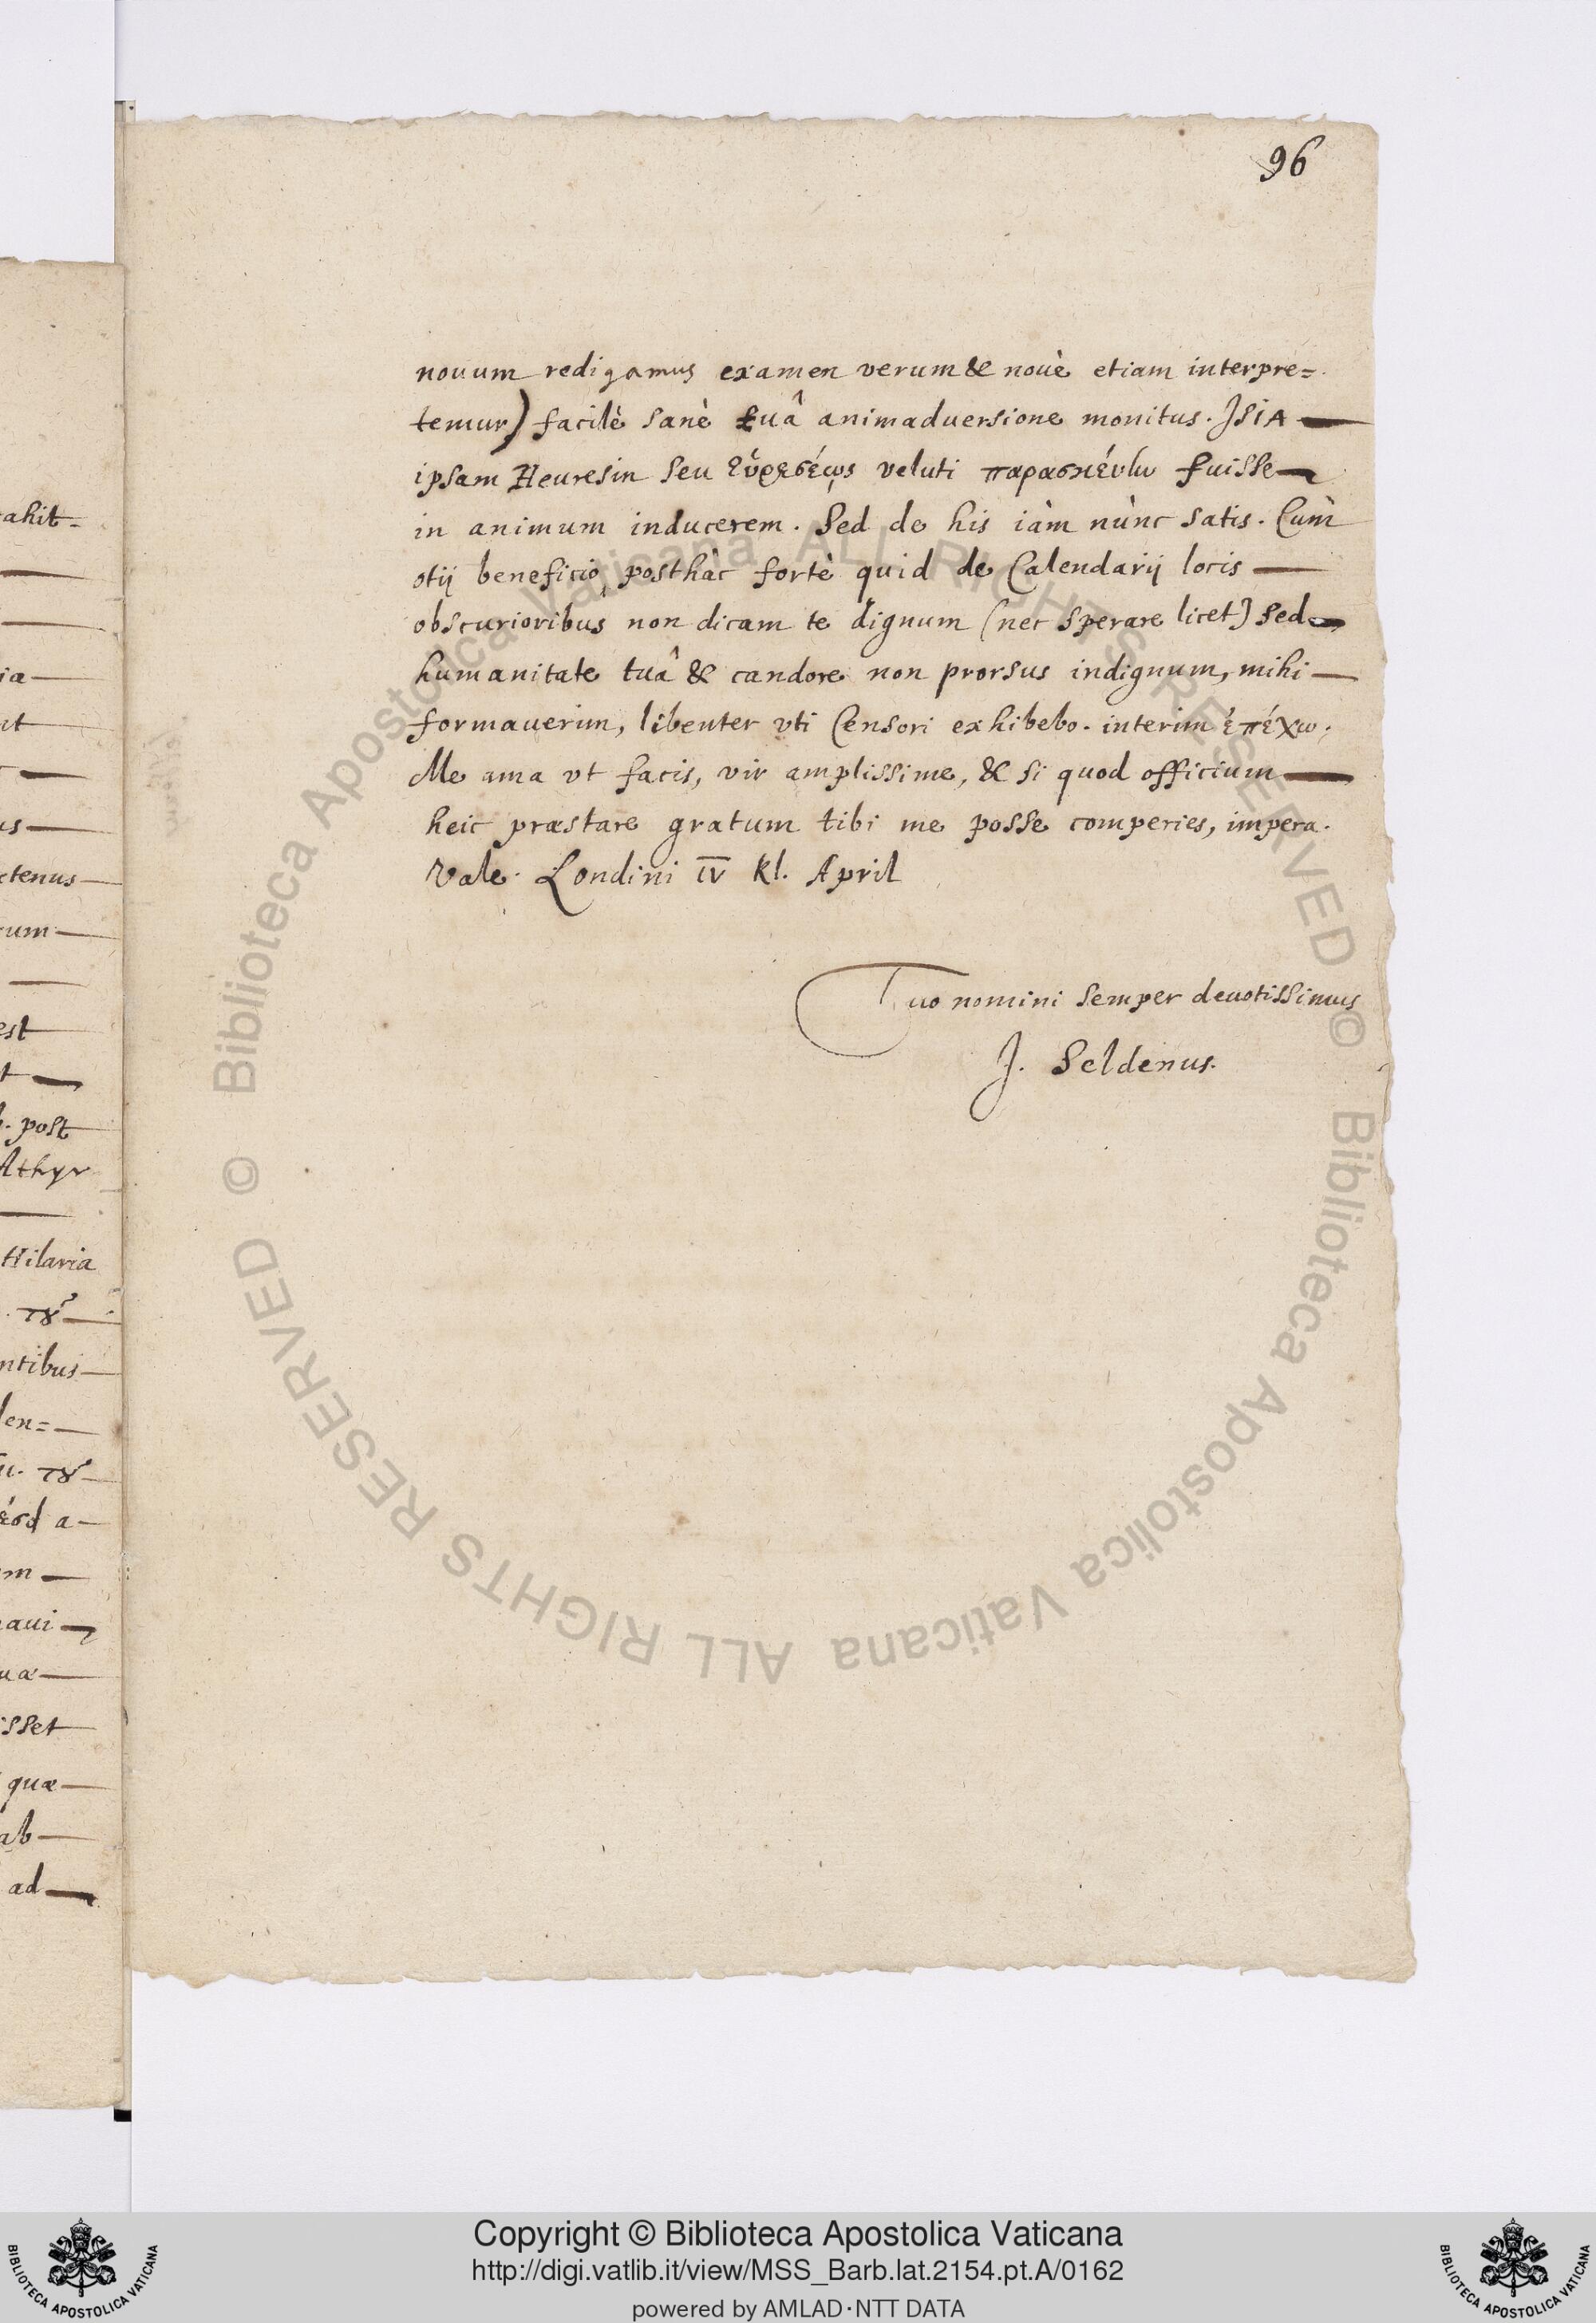 96
novum redigamus examen verum & nouè etiam interpre=
temur) facilè sanè tuâ animaduersione monitus. ISIA
ipsam Heuresin seu Εὑρεσέως veluti παρασκέυην fuisse
in animum inducerem. Sed de his iàm nùnc satis. Cùm
otij beneficio posthàc fortè quid de Calendarij locis
obscurioribus non dicam te dignum (nec sperare licet) sed
humanitate tuâ & candore non prorsus indignum, mihi
formauerim, libenter vti Censori exhibebo. interim ἐπέχω.
Me ama vt facis, vir amplissime, & si quod officium
heic præstare gratum tibi me posse comperies, impera.
Vale. Londini IV Kl. April
Tuo nomini semper deuotissimus
J. Seldenus.
ahit=
ia
nt
us
ctenus
rum
est
t
. post
Athyr
Hilaria
. τȣ͂
ntibus
len=
. τȣ͂
a
m
aui
ua
isset
quæ
ab
ad
© Biblioteca Apostolica Vaticana ALL RIGHTS RESERVED © Biblioteca Apostolica Vaticana ALL RIGHTS RESERVED
Copyright © Biblioteca Apostolica Vaticana
http://digi.vatlib.it/view/MSS_Barb.lat.2154.pt.A/0162
powered by AMLAD·NTT DATA
BIBLIOTECA APOSTOLICA VATICANA
BIBLIOTECA APOSTOLICA VATICANA